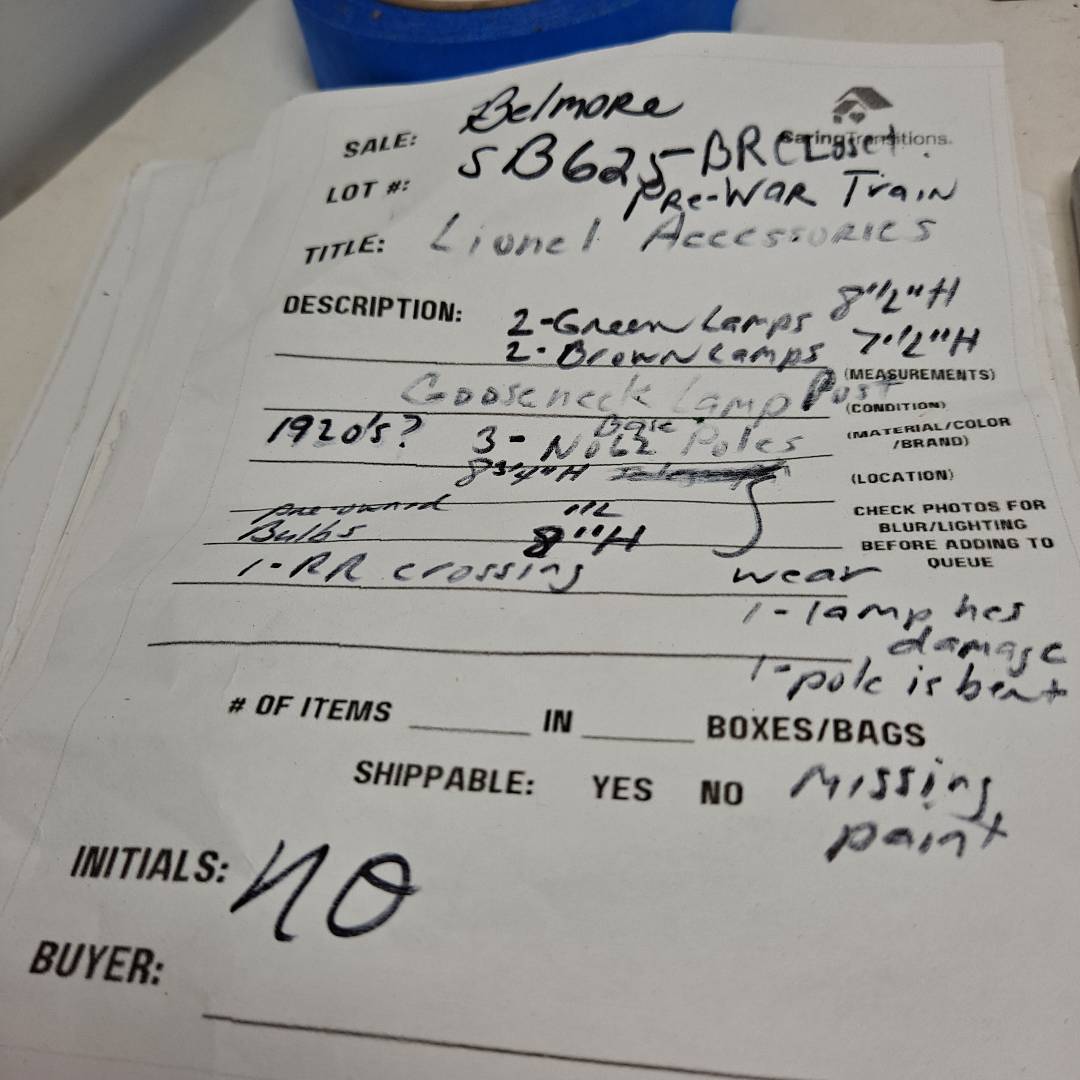 SALE: Belmore
CaringTransitions.
LOT #: SB625-BR Closet
Pre-War Train
TITLE: Lionel Accessories
DESCRIPTION: 2-Green Lamps 8 1/2"H
2-Brown Lamps 7 1/2"H
(MEASUREMENTS)
Gooseneck Lamp Post
(CONDITION)
1920's? 3- No 62 Base Poles
(MATERIAL/COLOR
/BRAND)
8 3/4"H
(LOCATION)
Bulbs 8"H
CHECK PHOTOS FOR
BLUR/LIGHTING
BEFORE ADDING TO
QUEUE
1-RR crossing wear
1-lamp hes
damage
1-pole is bent
# OF ITEMS ______ IN ______ BOXES/BAGS
SHIPPABLE: YES NO Missing
paint
INITIALS: NO
BUYER: